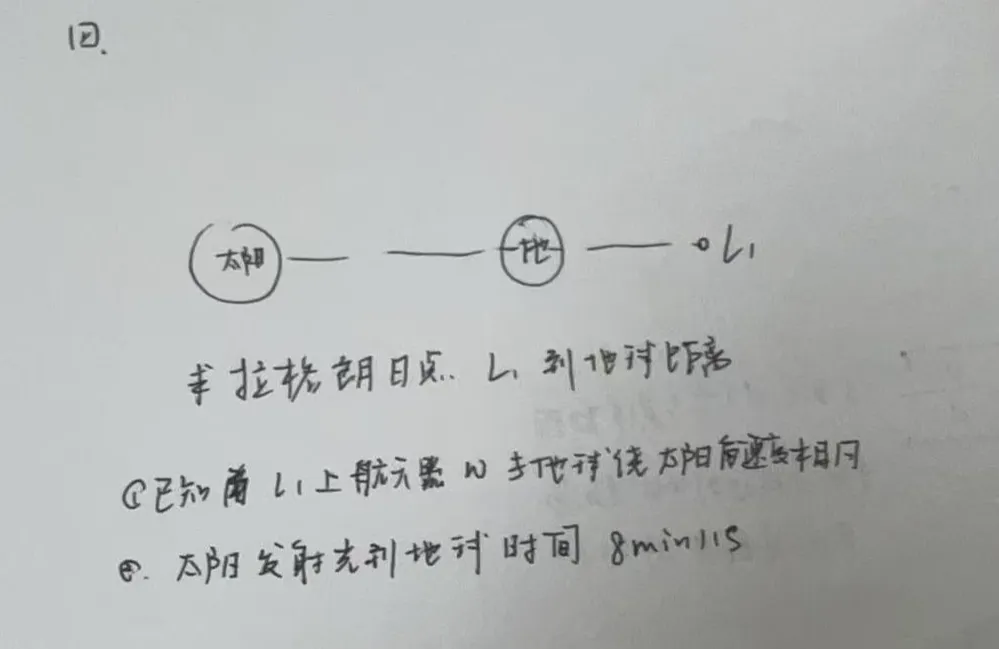 太阳
地
L₁
求拉格朗日点. L₁ 到地球距离
①已知 L₁上航天器 w 与地球绕太阳角速度相同
②. 太阳发射光到地球时间 8min11s